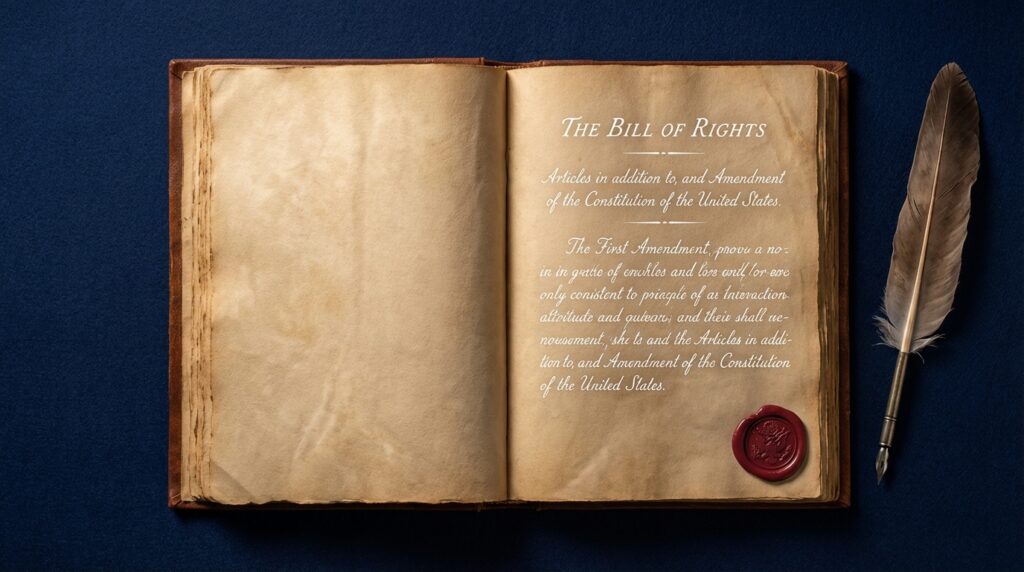 The Bill of Rights
Articles in addition to, and Amendment
of the Constitution of the United States.
The First Amendment, prova a no-
in in of and and/or
only consistent to principle of an Interaction
and and their shall re-
nousement, shi ts and the Articles in addi-
tion to, and Amendment of the Constitution
of the United States.